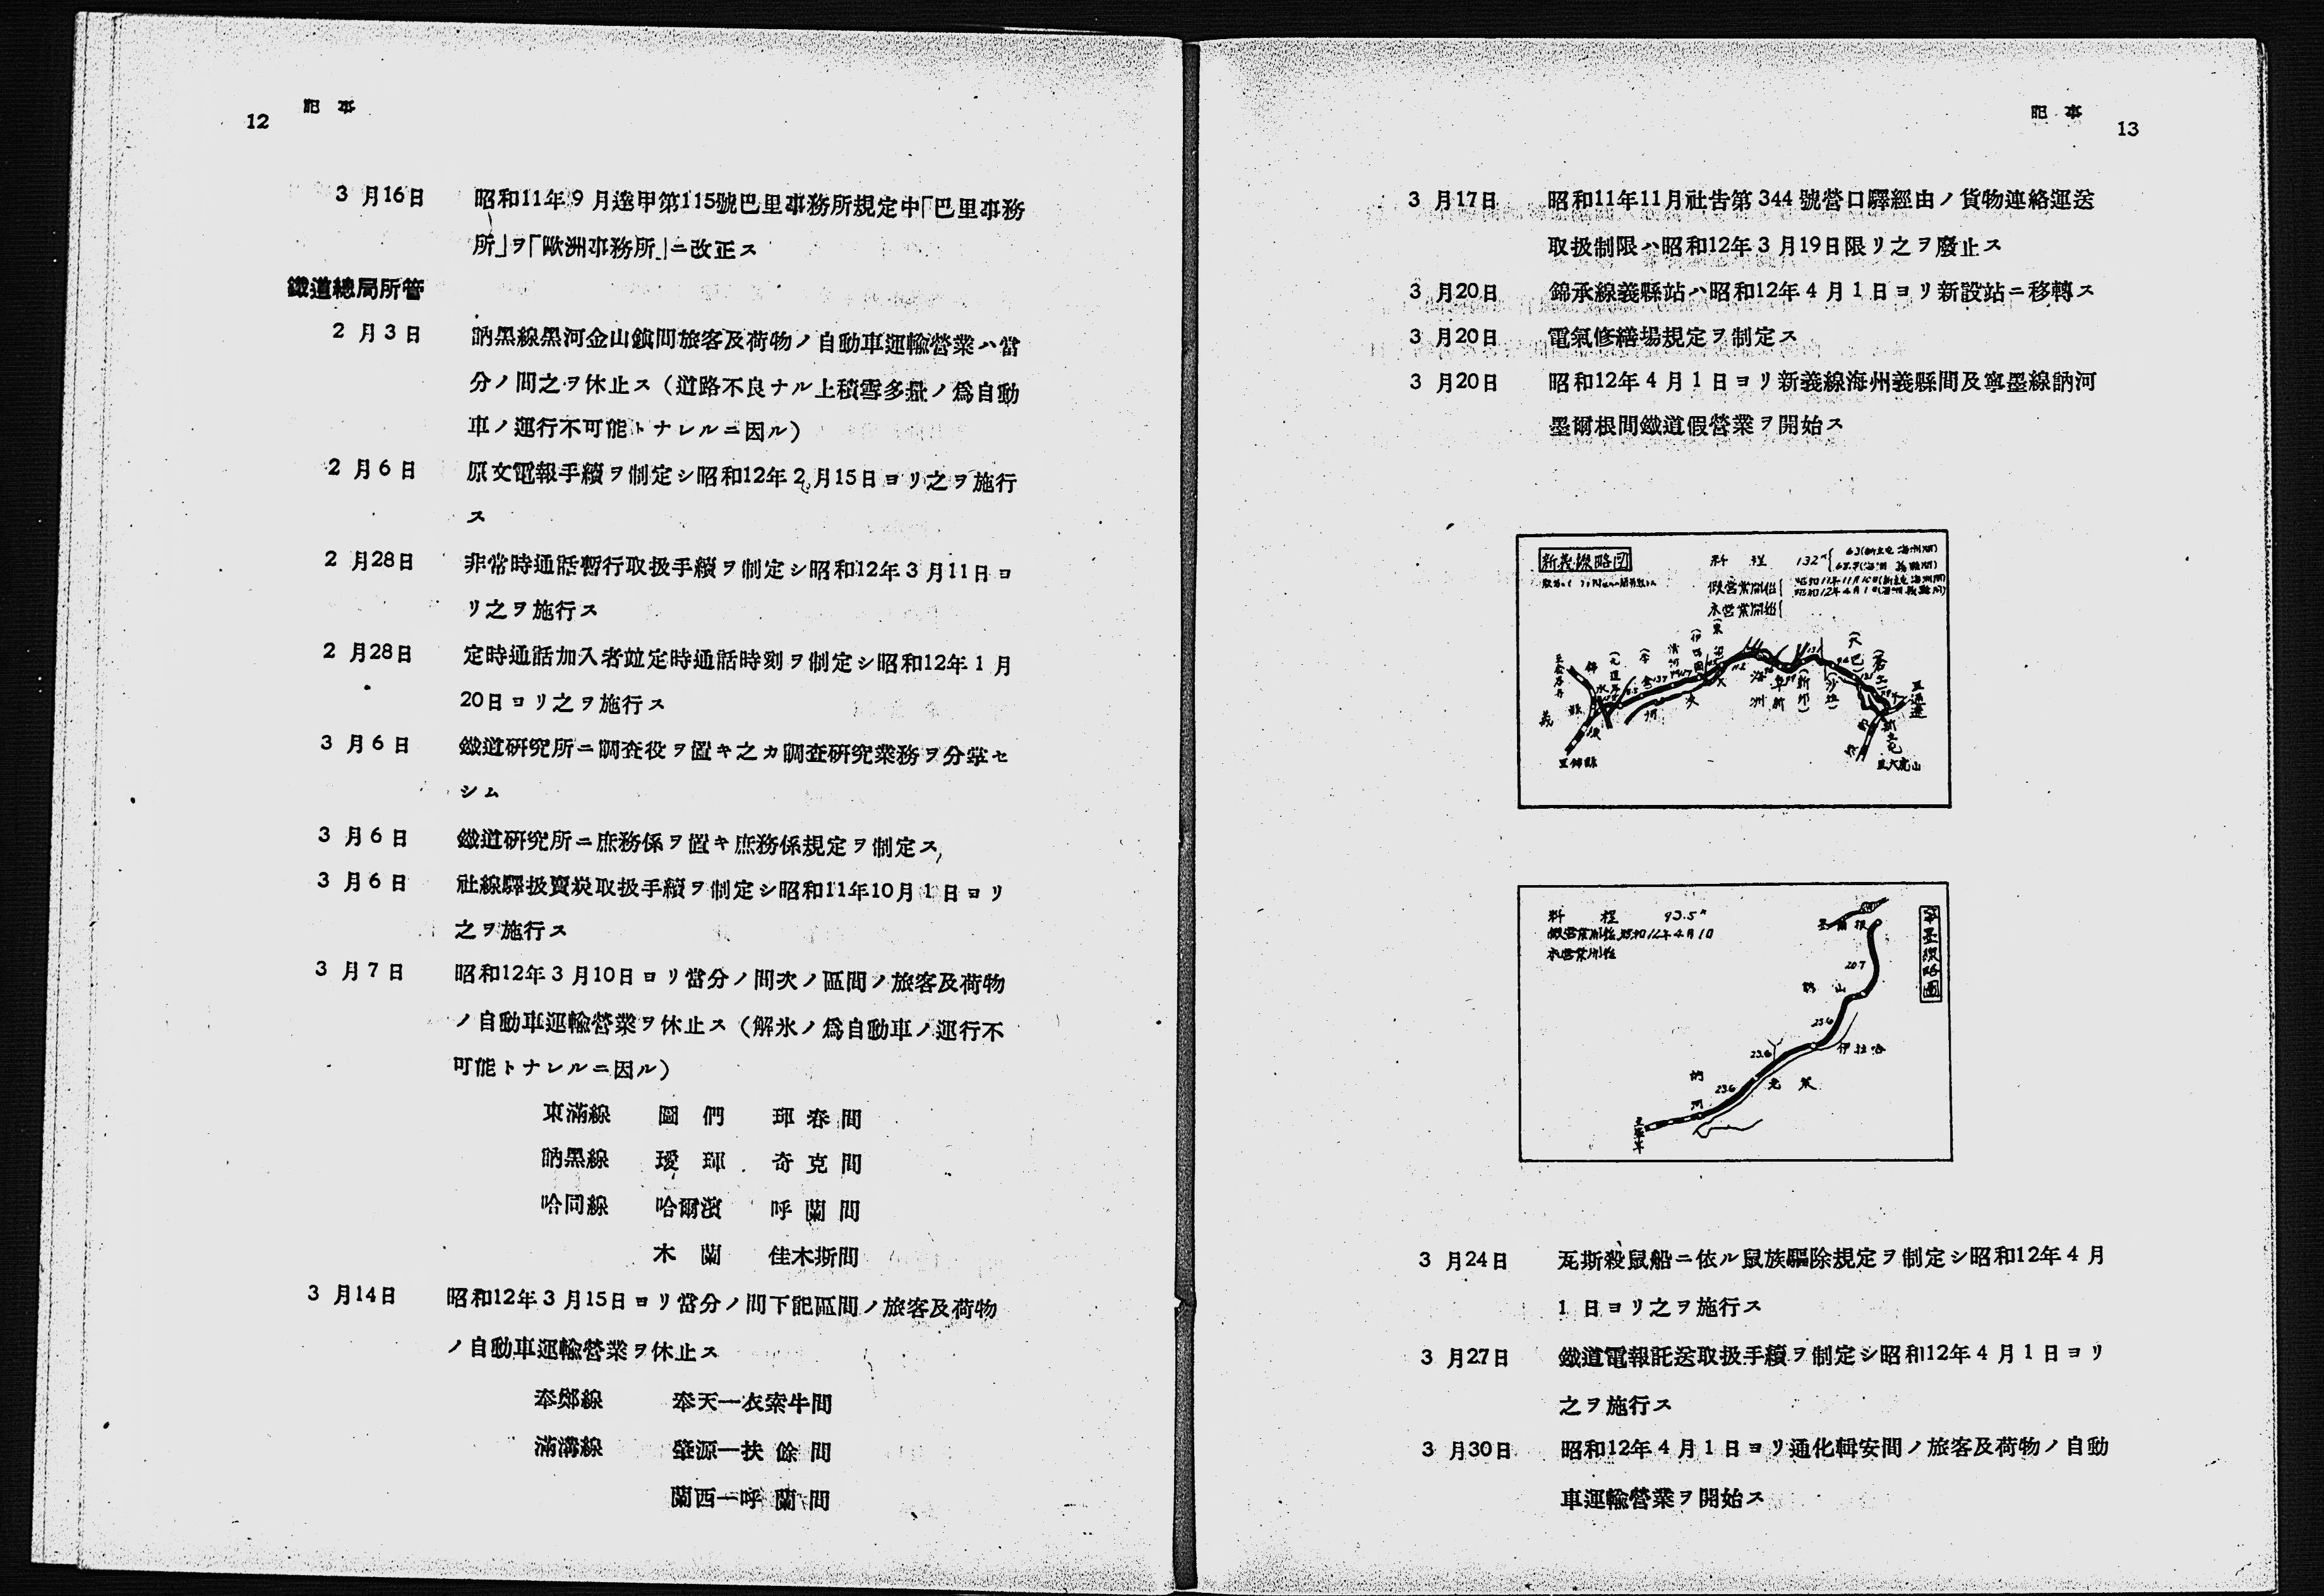 12
記事
3月16日 昭和11年9月達甲第115號巴里事務所規定中「巴里事務
所」ヲ「歐洲事務所」ニ改正ス
鐵道總局所管
2月3日 訥黑線黑河金山鎭間旅客及荷物ノ自動車運輸營業ハ當
分ノ間之ヲ休止ス(道路不良ナル上積雪多量ノ爲自動
車ノ運行不可能トナレルニ因ル)
2月6日 原文電報手續ヲ制定シ昭和12年2月15日ヨリ之ヲ施行
ス
2月28日 非常時通話暫行取扱手續ヲ制定シ昭和12年3月11日ヨ
リ之ヲ施行ス
2月28日 定時通話加入者竝定時通話時刻ヲ制定シ昭和12年1月
20日ヨリ之ヲ施行ス
3月6日 鐵道硏究所ニ調査役ヲ置キ之カ調査硏究業務ヲ分掌セ
シム
3月6日 鐵道硏究所ニ庶務係ヲ置キ庶務係規定ヲ制定ス
3月6日 社線驛扱賣炭取扱手續ヲ制定シ昭和11年10月1日ヨリ
之ヲ施行ス
3月7日 昭和12年3月10日ヨリ當分ノ間次ノ區間ノ旅客及荷物
ノ自動車運輸營業ヲ休止ス(解氷ノ爲自動車ノ運行不
可能トナレルニ因ル)
東滿線 圖們 琿春間
訥黑線 璦琿 奇克間
哈同線 哈爾濱 呼蘭間
木蘭 佳木斯間
3月14日 昭和12年3月15日ヨリ當分ノ間下記區間ノ旅客及荷物
ノ自動車運輸營業ヲ休止ス
奉鄭線 奉天—衣索牛間
滿溝線 肇源—扶餘間
蘭西—呼蘭間
記事
13
3月17日 昭和11年11月社吿第344號營口驛經由ノ貨物連絡運送
取扱制限ハ昭和12年3月19日限リ之ヲ廢止ス
3月20日 錦承線義縣站ハ昭和12年4月1日ヨリ新設站ニ移轉ス
3月20日 電氣修繕場規定ヲ制定ス
3月20日 昭和12年4月1日ヨリ新義線海州義縣間及寧墨線訥河
墨爾根間鐵道假營業ヲ開始ス
新義線略図
料程 132
假營業開始
本營業開始
海州
阜新
(新邱)
義縣
至錦縣
至大虎山
寧墨線略圖
料程 93.5
假營業開始 昭和12年4月1日
本營業開始
墨爾根
20.7
訥山
25.6
伊拉哈
23.6
老萊
23.6
訥河
3月24日 瓦斯殺鼠船ニ依ル鼠族驅除規定ヲ制定シ昭和12年4月
1日ヨリ之ヲ施行ス
3月27日 鐵道電報託送取扱手續ヲ制定シ昭和12年4月1日ヨリ
之ヲ施行ス
3月30日 昭和12年4月1日ヨリ通化輯安間ノ旅客及荷物ノ自動
車運輸營業ヲ開始ス